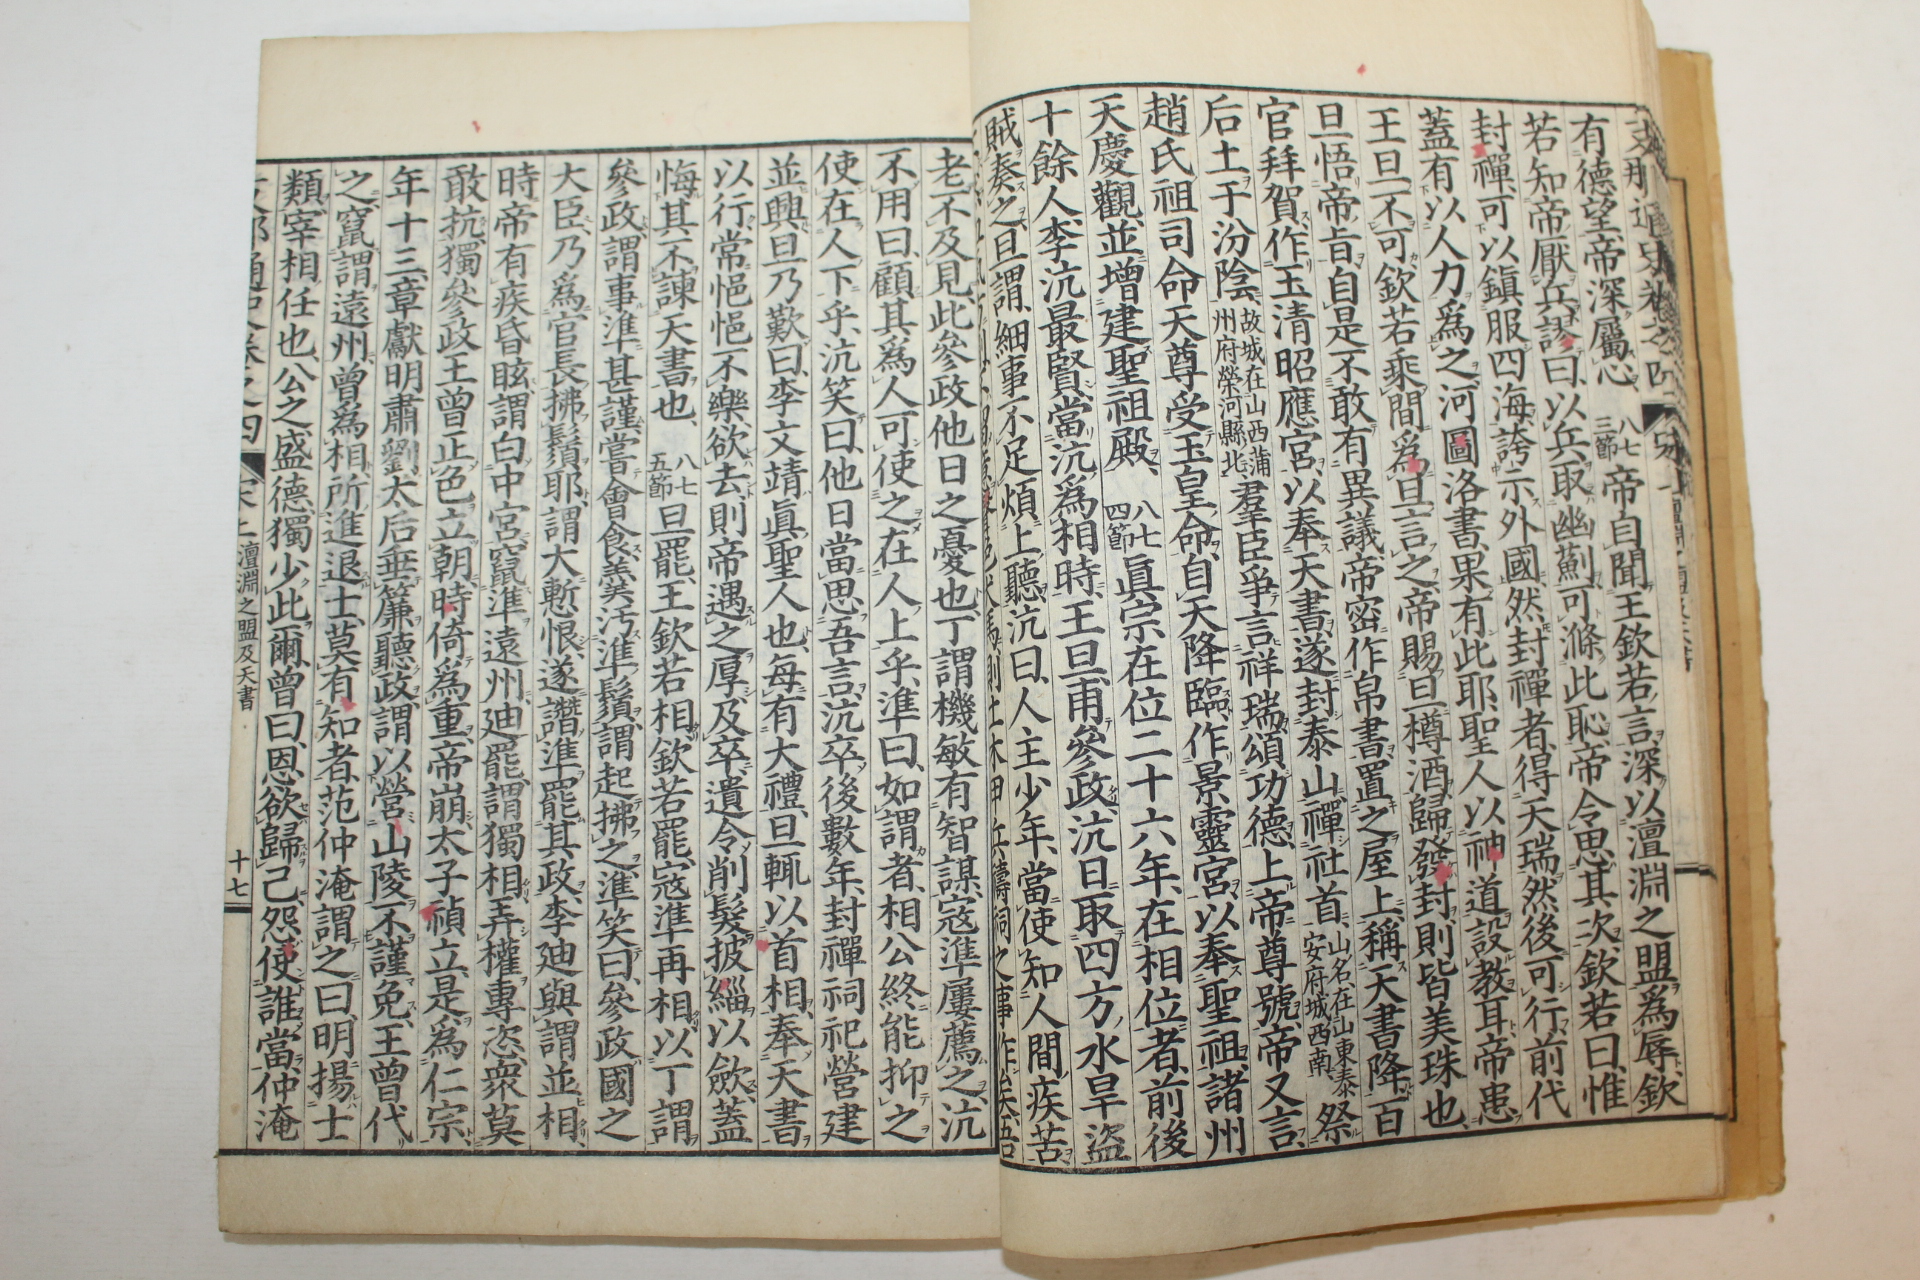 支那通史卷之四
有德望帝深屬心八七三節帝自聞王欽若言深以澶淵之盟爲辱欽
若知帝厭兵謬曰以兵取幽薊可滌此恥帝令思其次欽若曰惟
封禪可以鎭服四海誇示外國然封禪者得天瑞然後可行前代
蓋有以人力爲之河圖洛書果有此耶聖人以神道設教耳帝患
王旦不可欽若乘間爲旦言之帝賜旦樽酒歸發封則皆美珠也
旦悟帝旨自是不敢有異議帝密作帛書置之屋上稱天書降百
官拜賀作玉清昭應宮以奉天書遂封泰山禪社首山名在山東泰安府城西南祭
后土于汾陰故城在山西蒲州府榮河縣北羣臣爭言祥瑞頌功德上帝尊號帝又言
趙氏祖司命天尊受玉皇命自天降臨作景靈宮以奉聖祖諸州
天慶觀並增建聖祖殿八七四節眞宗在位二十六年在相位者前後
十餘人李沆最賢當沆爲相時王旦甫參政沆日取四方水旱盜
賊奏之旦謂細事不足煩上聽沆曰人主少年當使知人間疾苦
則土木甲兵禱祠之事作矣吾
老不及見此參政他日之憂也丁謂機敏有智謀寇準屢薦之沆
不用曰顧其爲人可使之在人上乎準曰如謂者相公終能抑之
使在人下乎沆笑曰他日當思吾言沆卒後數年封禪祠祀營建
並興旦乃歎曰李文靖眞聖人也每有大禮旦輒以首相奉天書
以行常悒悒不樂欲去則帝遇之厚及卒遺令削髮披緇以斂蓋
悔其不諫天書也八七五節旦罷王欽若相欽若罷寇準再相以丁謂
參政謂事準甚謹嘗會食羹汚準鬚謂起拂之準笑曰參政國之
大臣乃爲官長拂鬚耶謂大慚恨遂譖準罷其政李迪與謂並相
時帝有疾昏眩謂白中宮竄準遠州迪罷謂獨相弄權專恣衆莫
敢抗獨參政王曾正色立朝時倚爲重帝崩太子禎立是爲仁宗
年十三章獻明肅劉太后垂簾聽政謂以營山陵不謹免王曾代
之竄謂遠州曾爲相所進退士莫有知者范仲淹謂之曰明揚士
類宰相任也公之盛德獨少此爾曾曰恩欲歸己怨使誰當仲淹
支那通史卷之四 宋上 澶淵之盟及天書 十七